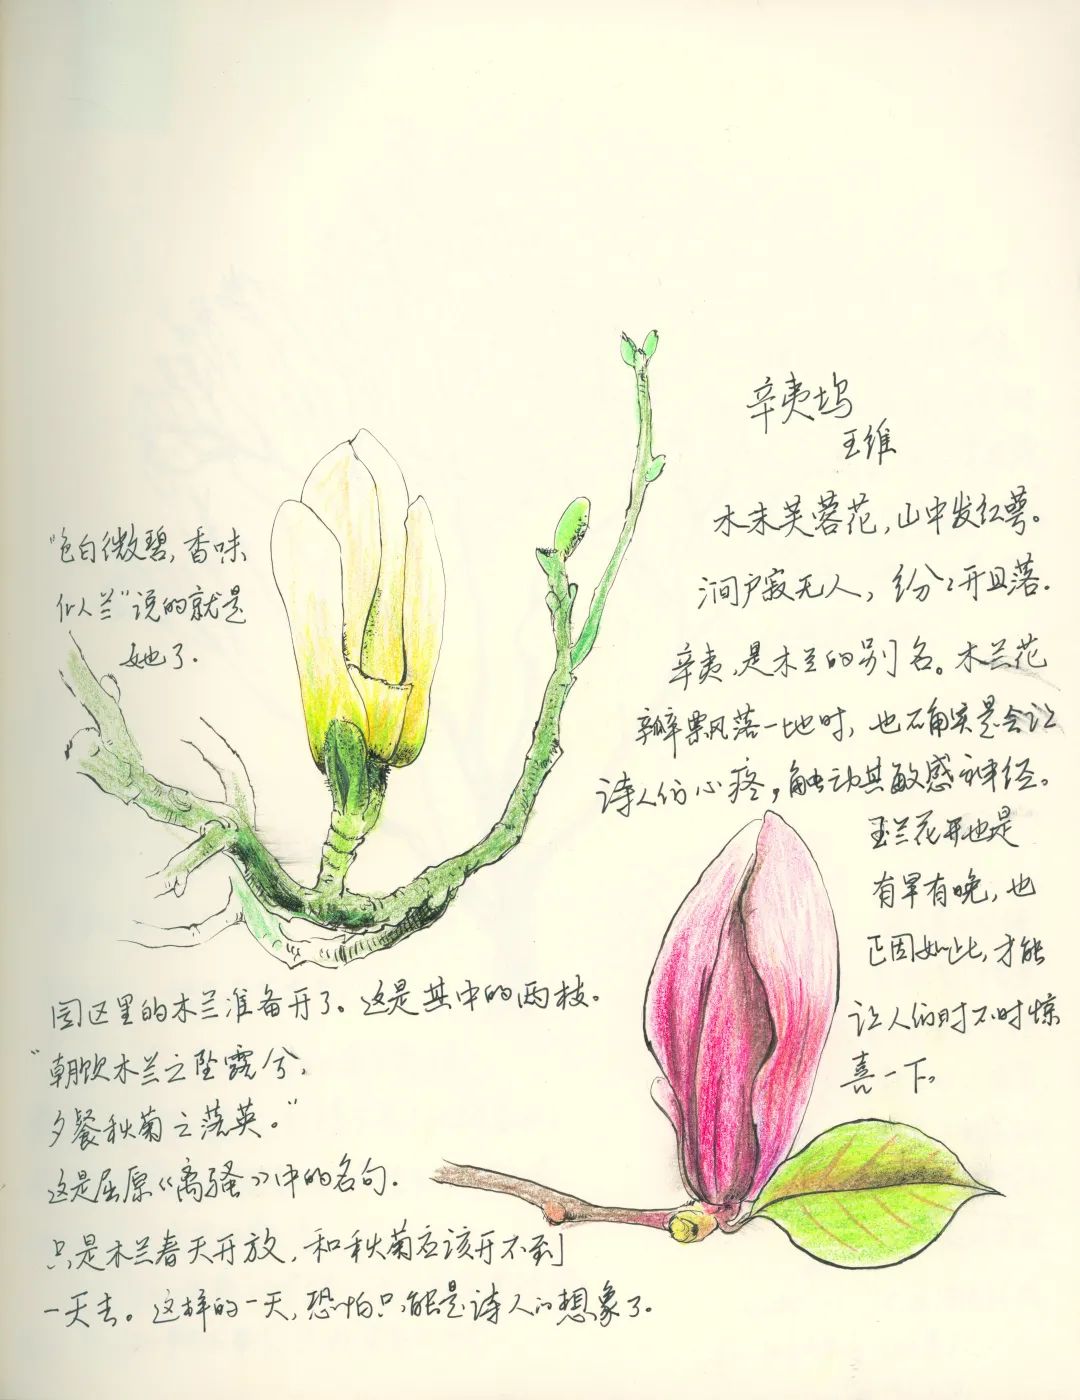 "色白微碧，香味
似人兰"说的就是
她了．
辛夷坞
王维
木末芙蓉花，山中发红萼。
涧户寂无人，纷々开且落．
辛夷，是木兰的别名。木兰花
瓣飘落一地时，也确实是会让
诗人们心疼，触动其敏感神经。
玉兰花开也是
有早有晚，也
正因如此，才能
让人们时不时惊
喜一下。
园区里的木兰准备开了。这是其中的两枝。
"朝饮木兰之坠露兮，
夕餐秋菊之落英。"
这是屈原《离骚》中的名句．
只是木兰春天开放，和秋菊应该开不到
一天去。这样的一天，恐怕只能是诗人的想象了．